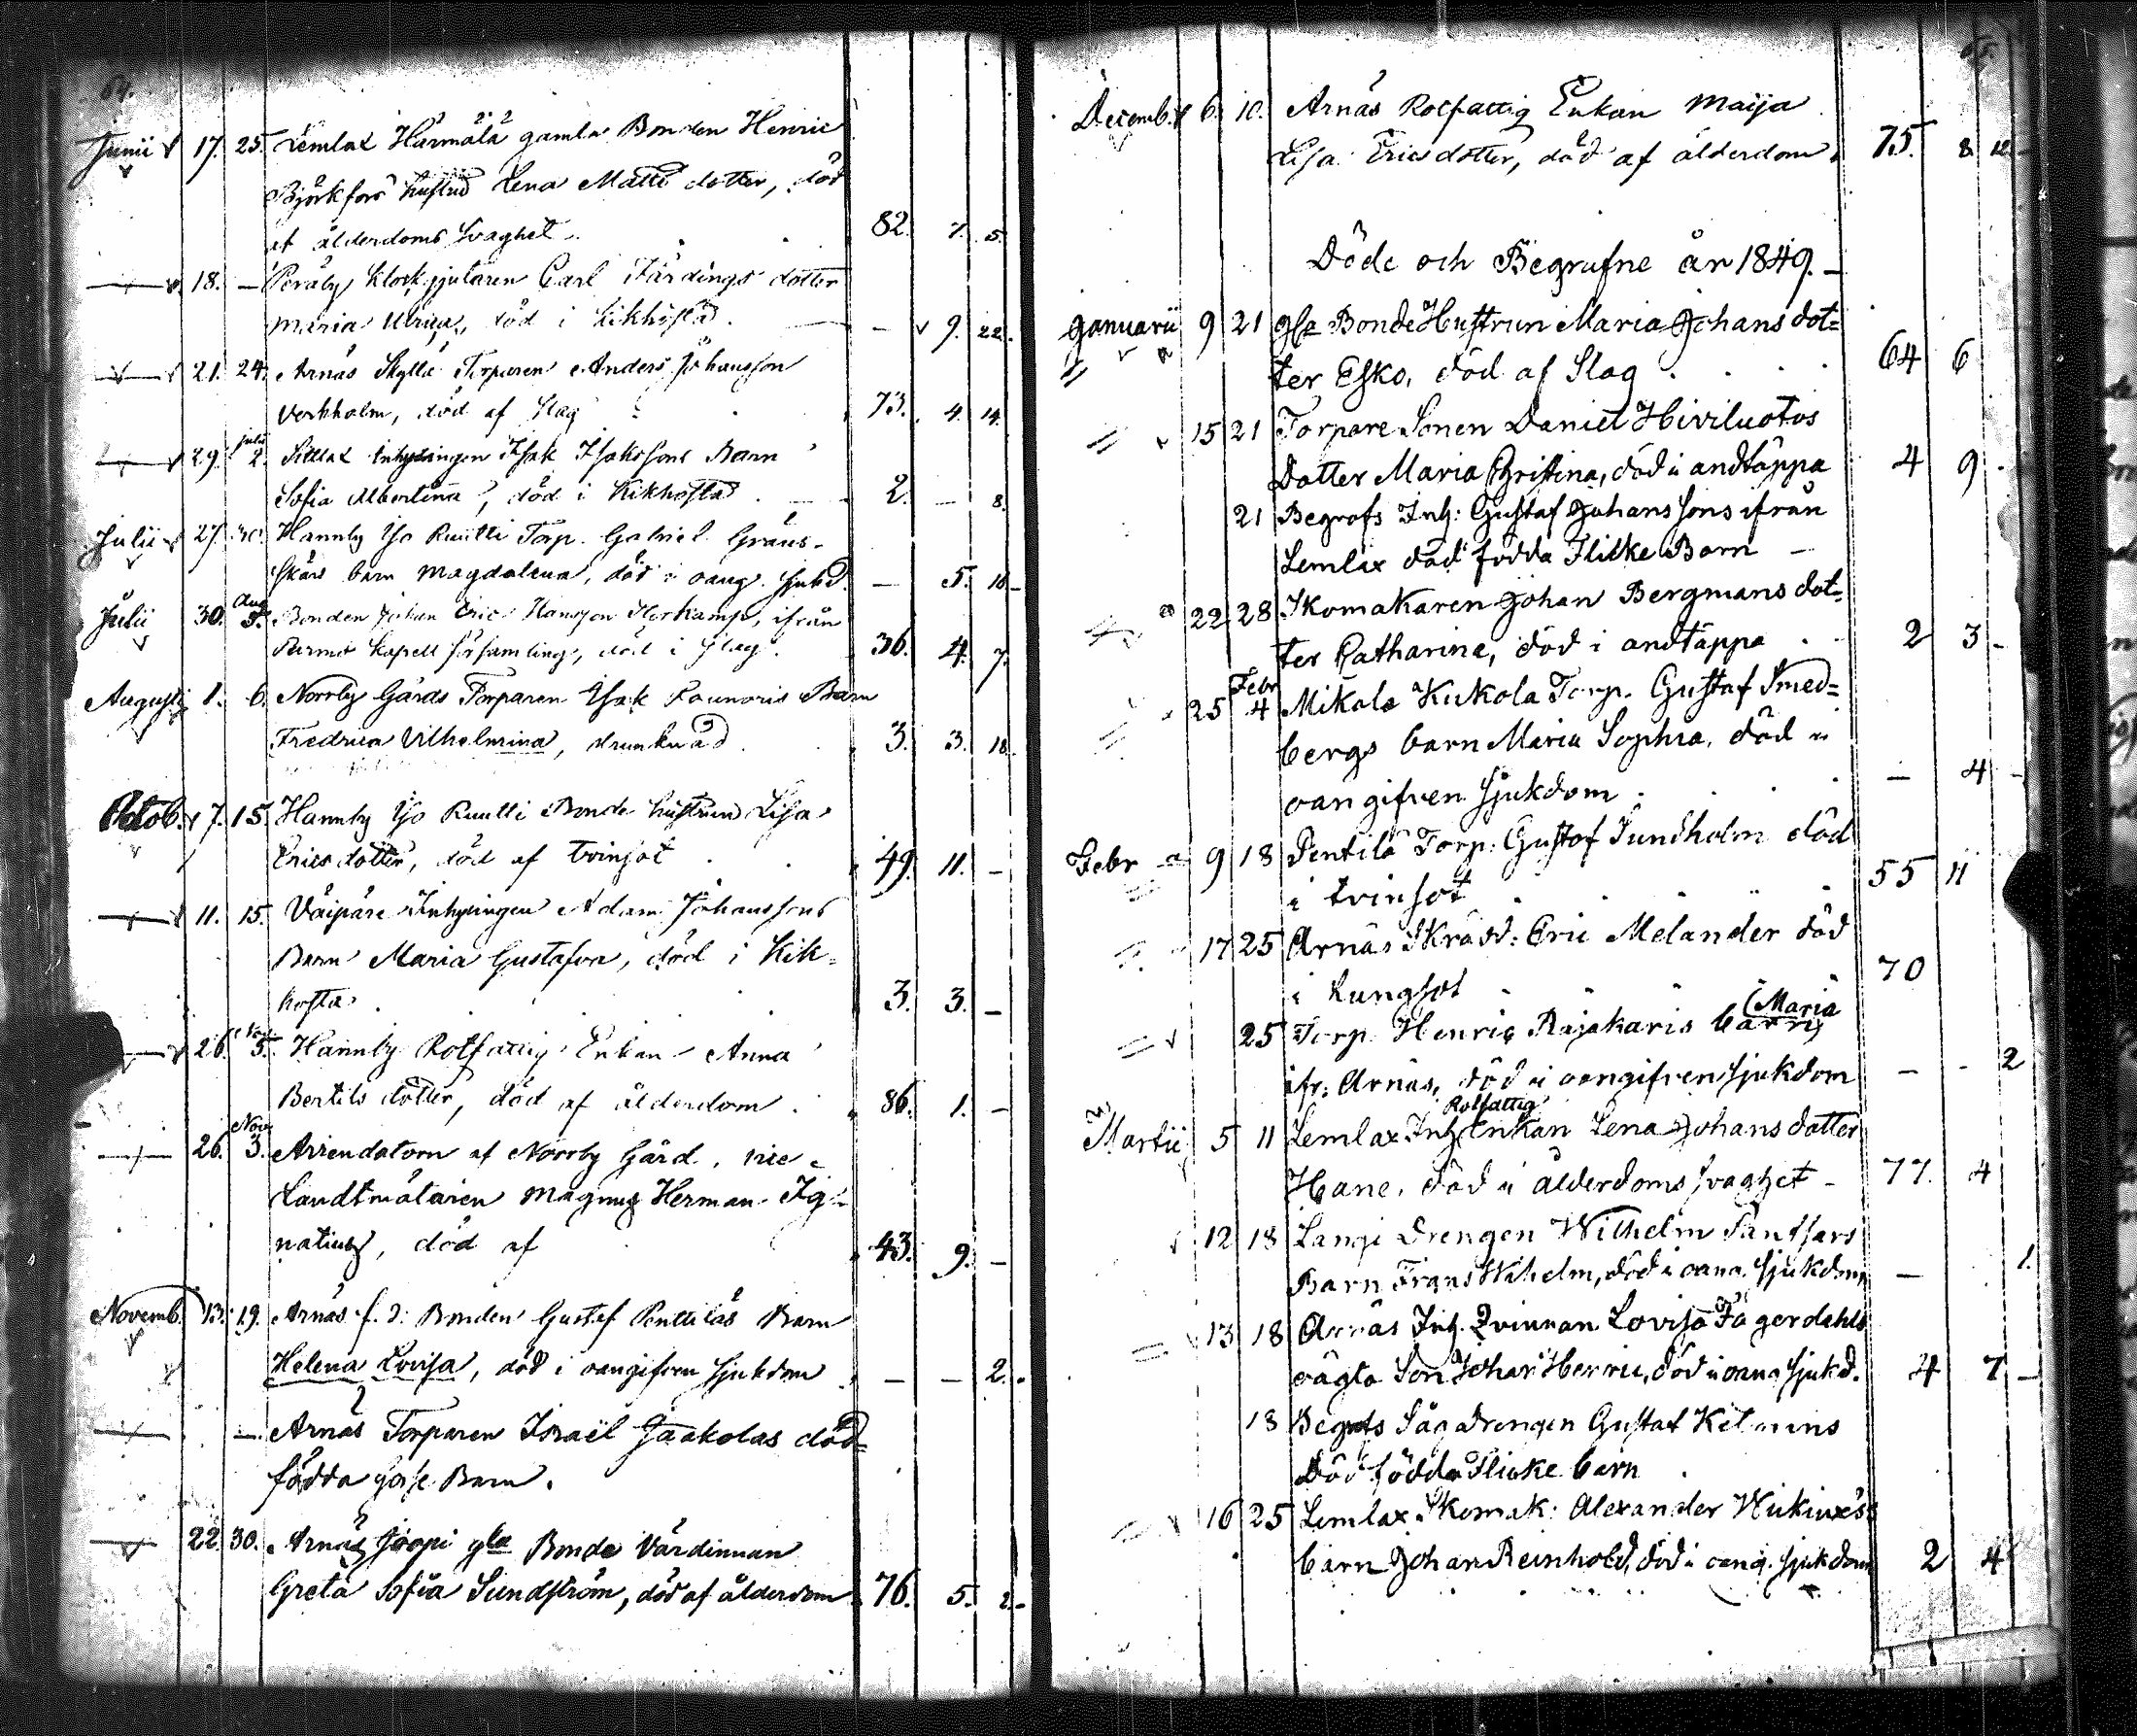 64.
Junii 17. 25. Lemlax Härmälä gamla Bonden Henric
Björkfors hustru Lena Matts dotter, död
af ålderdoms svaghet. 82. 7. 5.
18. — Peräby Klockgjutaren Carl Färdings dotter
Maria Ulrica, död i kikhosta. — 9. 22.
21. 24. Arnäs Skyllä Torparen Anders Johansson
Verkholm, död af slag 73. 4. 14.
29. Julii 2. Sittlax Inhysingen Isak Isakssons Barn
Sofia Albertina, död i Kikhosta. 2. — 8.
Julii 27. 30. Hannby Iso Ruutti Torp. Gabriel Gräns-
skärs barn Magdalena, död i oang. sjukd. — 5. 18.
Julii 30. Aug 5. Bonden Johan Eric Hansson, ifrån
Kapell församling, död i slag. 36. 4. 7.
Augusti 1. 6. Norrby Gårds Torparen Isak Barn
Fredrica Vilhelmina, drunknad. 3. 3. 18.
Octob. 7. 15. Hannby Iso Ruutti Bonde hustrun Lisa
Ericsdotter, död af tvinsot 49. 11. —
11. 15. Väipäre Inhysingen Adam Johanssons
Barn Maria Gustafva, död i Kik-
hosta. 3. 3. —
26. Nov. 5. Hannby Rotfattig Enkan Anna
Bertils dotter, död af ålderdom. 86. 1. —
26. Nov. 3. Arrendatorn af Norrby Gård, vice
Landtmätaren Magnus Herman Ig-
natius, död af 43. 9. —
Novemb. 13. 19. Arnäs f.d. Bonden Gustaf Penttiläs Barn
Helena Lovisa, död i oangifven sjukdom — — 2.
— Arnäs Torparen Israël Jaakolas död-
födda Gosse Barn.
22. 30. Arnäs Joopi gla Bonde Värdinnan
Greta Sofia Sundström, död af ålderdom 76. 5. 2.
65.
Decemb. 6. 10. Arnäs Rotfattig Enkan Maija
Lisa Ericsdotter, död af ålderdom. 75. 8. 12.
Döde och Begrafne år 1849.
Januarii 9 21 gla Bonde Hustrun Maria Johans dot=
ter Esko, död af Slag . . . 64 6
15 21 Torpare Sonen Daniel Hiviluotos
Dotter Maria Christina, död i andtäppa 4 9
21 Begrofs Inh: Gustaf Johanssons ifrån
Lemlax död födda Flicke Barn —
22 28 Skomakaren Johan Bergmans dot=
ter Catharina, död i andtäppa 2 3
25 Febr 4 Mikola Kukola Torp. Gustaf Smed=
bergs barn Maria Sophia, död i
oangifven sjukdom. — 4 —
Febr 9 18 Pentilä Torp: Gustaf Sundholm död
i tvinsot 55 11
17 25 Arnäs Skrädd: Eric Melander död
i Lungsot 70
25 Torp. Henric Rajakaris barn Maria
ifr: Arnäs, död i oangifven sjukdom — - 2
Martii 5 11 Lemlax Inh. Rotfattig Enkan Lena Johans dotter
Hane, död i ålderdoms svaghet — 77. 4
12 18 Langi Drengen Wilhelm
Barn Frans Wilhelm, död i oang. sjukdom — 1.
13 18 Arnäs Inh. Qvinnan Lovisa Fagerdahls
oägta Son Johan Henric, död i oang sjukd. 4 7 —
18 Begrofs Sågdrengen Gustaf Kelmins
Död födda Flicke barn
16 25 Lemlax Skomak: Alexander
barn Johan Reinhold, död i oang. sjukdom 2 4